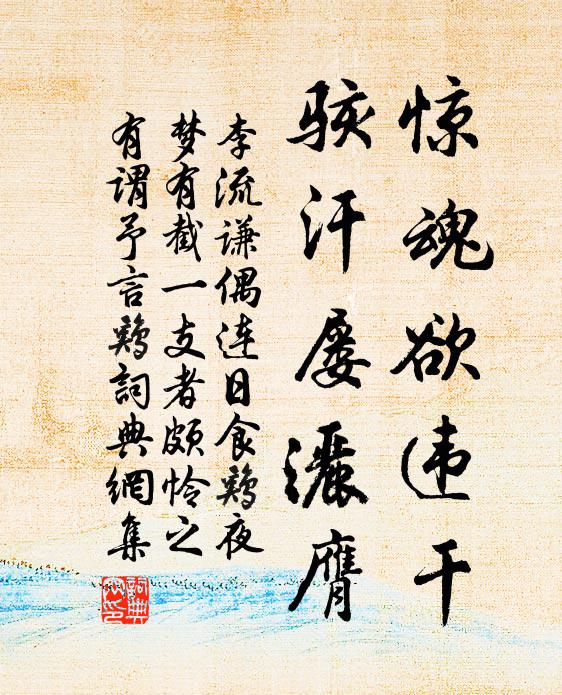 惊魂欲违干
骇汗屡灑膺
李流谦偶连日食鷄夜
梦有截一支者颇怜之
有谓予言鷄詞典網集
詞典